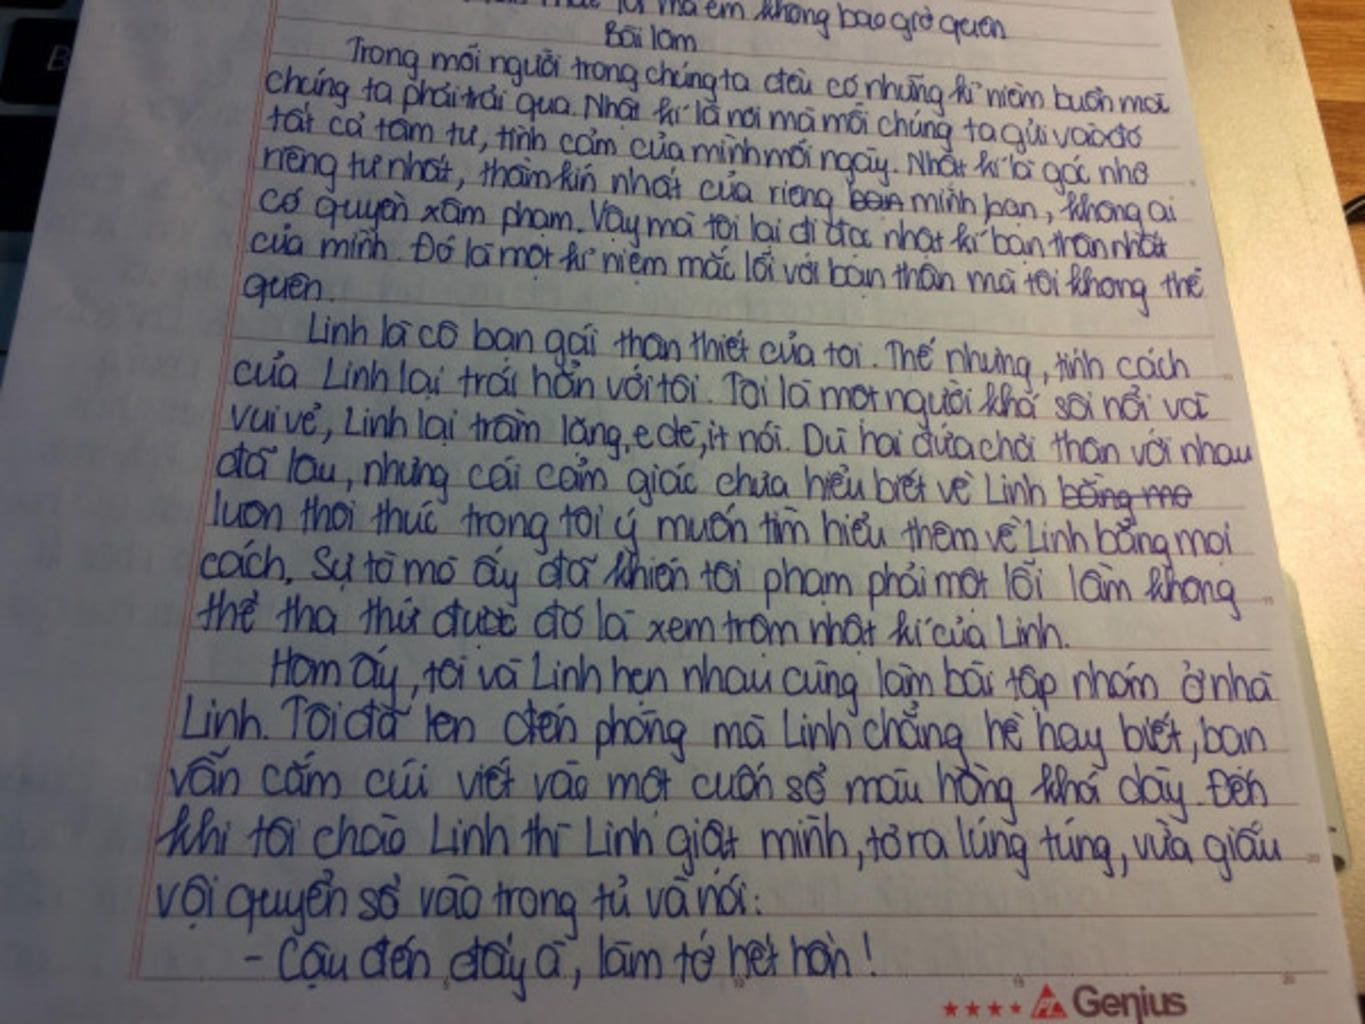 mà em không bao giờ quên
Bài làm
Trong mỗi người trong chúng ta đều có những kỉ niệm buồn mà
chúng ta phải trải qua. Nhật kí là nơi mà mỗi chúng ta gửi vào đó
tất cả tâm tư, tình cảm của mình mỗi ngày. Nhật kí là góc nhỏ
riêng tư nhất, thầm kín nhất của riêng bản mình bạn, không ai
có quyền xâm phạm. Vậy mà tôi lại đi đọc nhật kí bạn thân nhất
của mình. Đó là một kỉ niệm mắc lỗi với bạn thân mà tôi không thể
quên.
Linh là cô bạn gái thân thiết của tôi. Thế nhưng, tính cách
của Linh lại trái hẳn với tôi. Tôi là một người khá sôi nổi và
vui vẻ, Linh lại trầm lặng, e dè, ít nói. Dù hai đứa chơi thân với nhau
đã lâu, nhưng cái cảm giác chưa hiểu biết về Linh bằng mọ
luôn thôi thúc trong tôi ý muốn tìm hiểu thêm về Linh bằng mọi
cách. Sự tò mò ấy đã khiến tôi phạm phải một lỗi lầm không
thể tha thứ được đó là xem trộm nhật kí của Linh.
Hôm ấy, tôi và Linh hẹn nhau cùng làm bài tập nhóm ở nhà
Linh. Tôi đã lên đến phòng mà Linh chẳng hề hay biết, bạn
vẫn cắm cúi viết vào một cuốn sổ màu hồng khá dày. Đến
khi tôi chào Linh thì Linh giật mình, tỏ ra lúng túng, vừa giấu
vội quyển sổ vào trong tủ và nói:
- Cậu đến đấy à, làm tớ hết hồn!
Genius